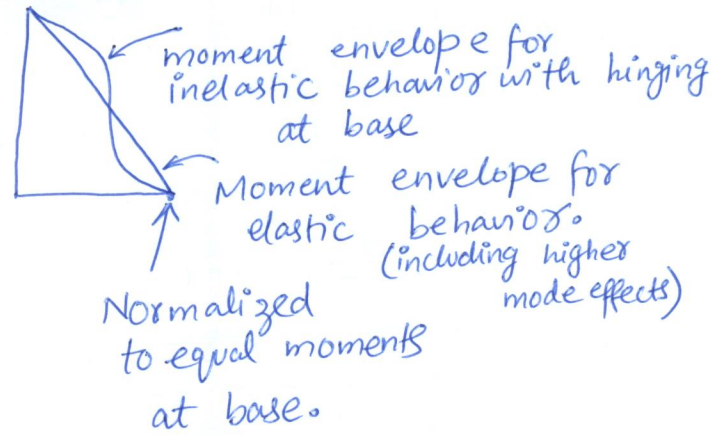 moment envelope for
inelastic behavior with hinging
at base
Moment envelope for
elastic behavior.
(including higher
mode effects)
Normalized
to equal moments
at base.